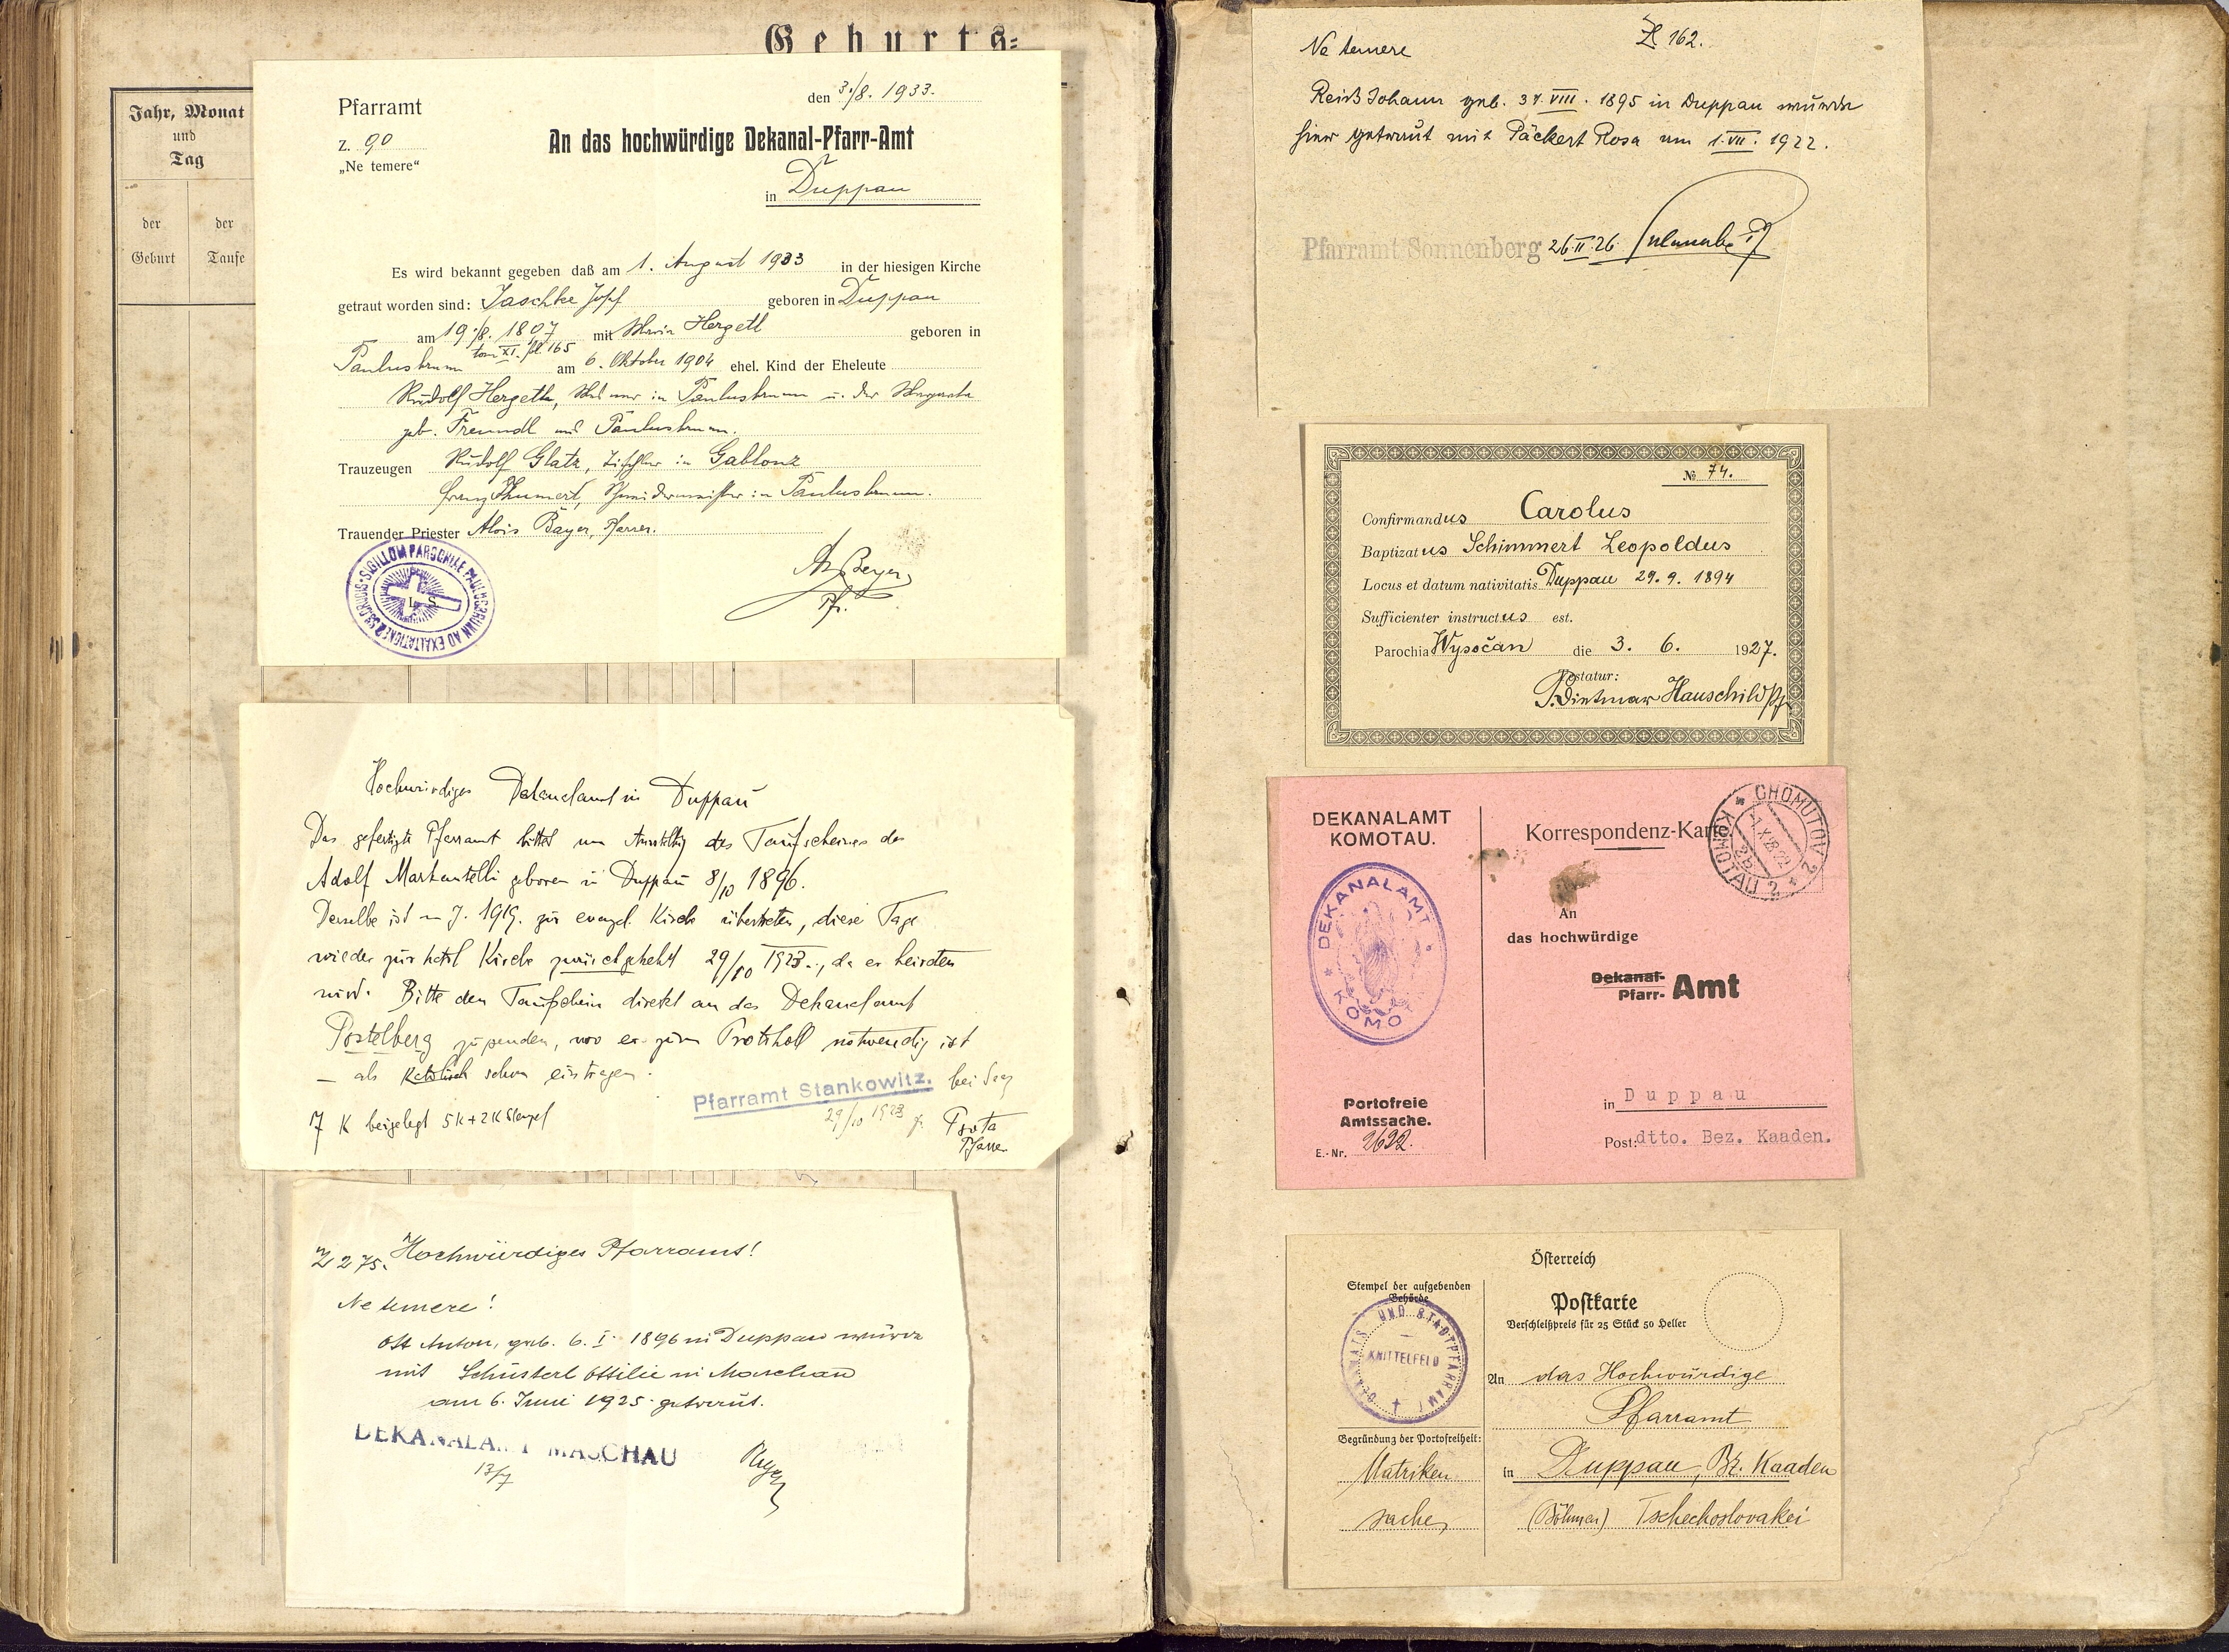 Geburts=
Jahr, Monat
und
Tag
der
Geburt
der
Taufe
Pfarramt
den 3./8. 1933.
Z. 90
„Ne temere“
An das hochwürdige Dekanal-Pfarr-Amt
in Duppau
Es wird bekannt gegeben daß am 1. August 1933 in der hiesigen Kirche
getraut worden sind: Jaschke Josef geboren in Duppau
am 19./8. 1897 mit Maria Hergetl geboren in
tom XI. fol. 165
Paulusbrunn am 6. Oktober 1904 ehel. Kind der Eheleute
Rudolf Hergeth, in Paulusbrunn u. der Margareta
geb. Freundl aus Paulusbrunn.
Trauzeugen Rudolf Glatz, Tischler in Gablonz
Franz Thumerl, Schneidermeister in Paulusbrunn.
Trauender Priester Alois Bayer, Pfarrer.
SIGILLUM PAROCHIAE PAULUSBRUNN AD EXALTATIONEM SS. CRUCIS
L S
Al. Beyer
Pfr.
Hochwürdiges Dekanalamt in Duppau
Das gefertigte Pfarramt bittet um Ausstellg des Taufscheines des
Adolf Markantelli geboren in Duppau 8/10 1896.
Derselbe ist im J. 1919. zur evangl. Kirche übertreten, diese Tage
wieder zur kathl Kirche zurückgekehrt 29/10 1923., da er heiraten
wird. Bitte den Taufschein direkt an das Dekanalamt
Postelberg zu senden, wo er zum Protokoll notwendig ist
– als katholisch schon eintragen.
Pfarramt Stankowitz. bei Saaz
29/10 1923
7 K beigelegt 5K+2K Stempel
Pfarrer
Z 275. Hochwürdiges Pfarramt!
Ne temere!
Ott Anton, geb. 6. I. 1896 in Duppau wurde
mit Schusterl Ottilie in Maschau
am 6. Juni 1925 getraut.
DEKANALAMT MASCHAU
13/7
Ne temere
Zl 162.
Reiß Johann geb. 31. VIII. 1895 in Duppau wurde
hier getraut mit Päckert Rosa am 1. VII. 1922.
Pfarramt Sonnenberg 26.II.26.
№ 74.
Confirmandus Carolus
Baptizatus Schimmert Leopoldus
Locus et datum nativitatis Duppau 29. 9. 1894
Sufficienter instructus est.
Parochia Wysočan die 3. 6. 1927.
Testatur:
P. Dietmar Hauschild Pf.
DEKANALAMT
KOMOTAU.
Korrespondenz-Karte
CHOMUTOV 2
KOMOTAU 2
DEKANALAMT
KOMOT
An
das hochwürdige
Dekanal-
Pfarr- Amt
in Duppau
Post: dtto. Bez. Kaaden.
Portofreie
Amtssache.
E.-Nr. 2622.
Österreich
Stempel der aufgebenden
Behörde
Postkarte
Verschleißpreis für 25 Stück 50 Heller
DEKANATS- UND STADTPFARRAMT
KNITTELFELD
An das Hochwürdige
Pfarramt
Begründung der Portofreiheit:
Matriken
sache
in Duppau, Bz. Kaaden
(Böhmen) Tschechoslovakei